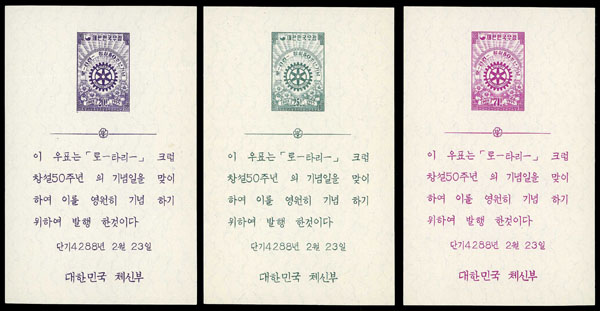 대한민국우표
이 우표는 「로ー타리ー」 크럽
창설50주년 의 기념일을 맞이
하여 이를 영원히 기념 하기
위하여 발행 한것이다
단기4288년 2월 23일
대한민국 체신부
대한민국우표
이 우표는 「로ー타리ー」 크럽
창설50주년 의 기념일을 맞이
하여 이를 영원히 기념 하기
위하여 발행 한것이다
단기4288년 2월 23일
대한민국 체신부
대한민국우표
이 우표는 「로ー타리ー」 크럽
창설50주년 의 기념일을 맞이
하여 이를 영원히 기념 하기
위하여 발행 한것이다
단기4288년 2월 23일
대한민국 체신부